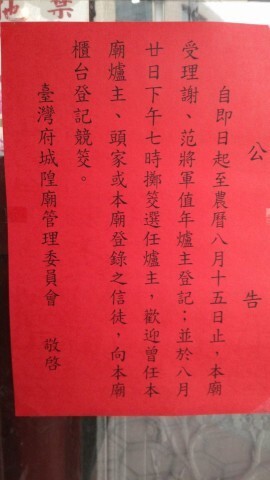 公告
自即日起至農曆八月十五日止，本廟
受理謝、范將軍值年爐主登記；並於八月
廿日下午七時擲筊選任爐主，歡迎曾任本
廟爐主、頭家或本廟登錄之信徒，向本廟
櫃台登記競筊。
臺灣府城隍廟管理委員會 敬啓